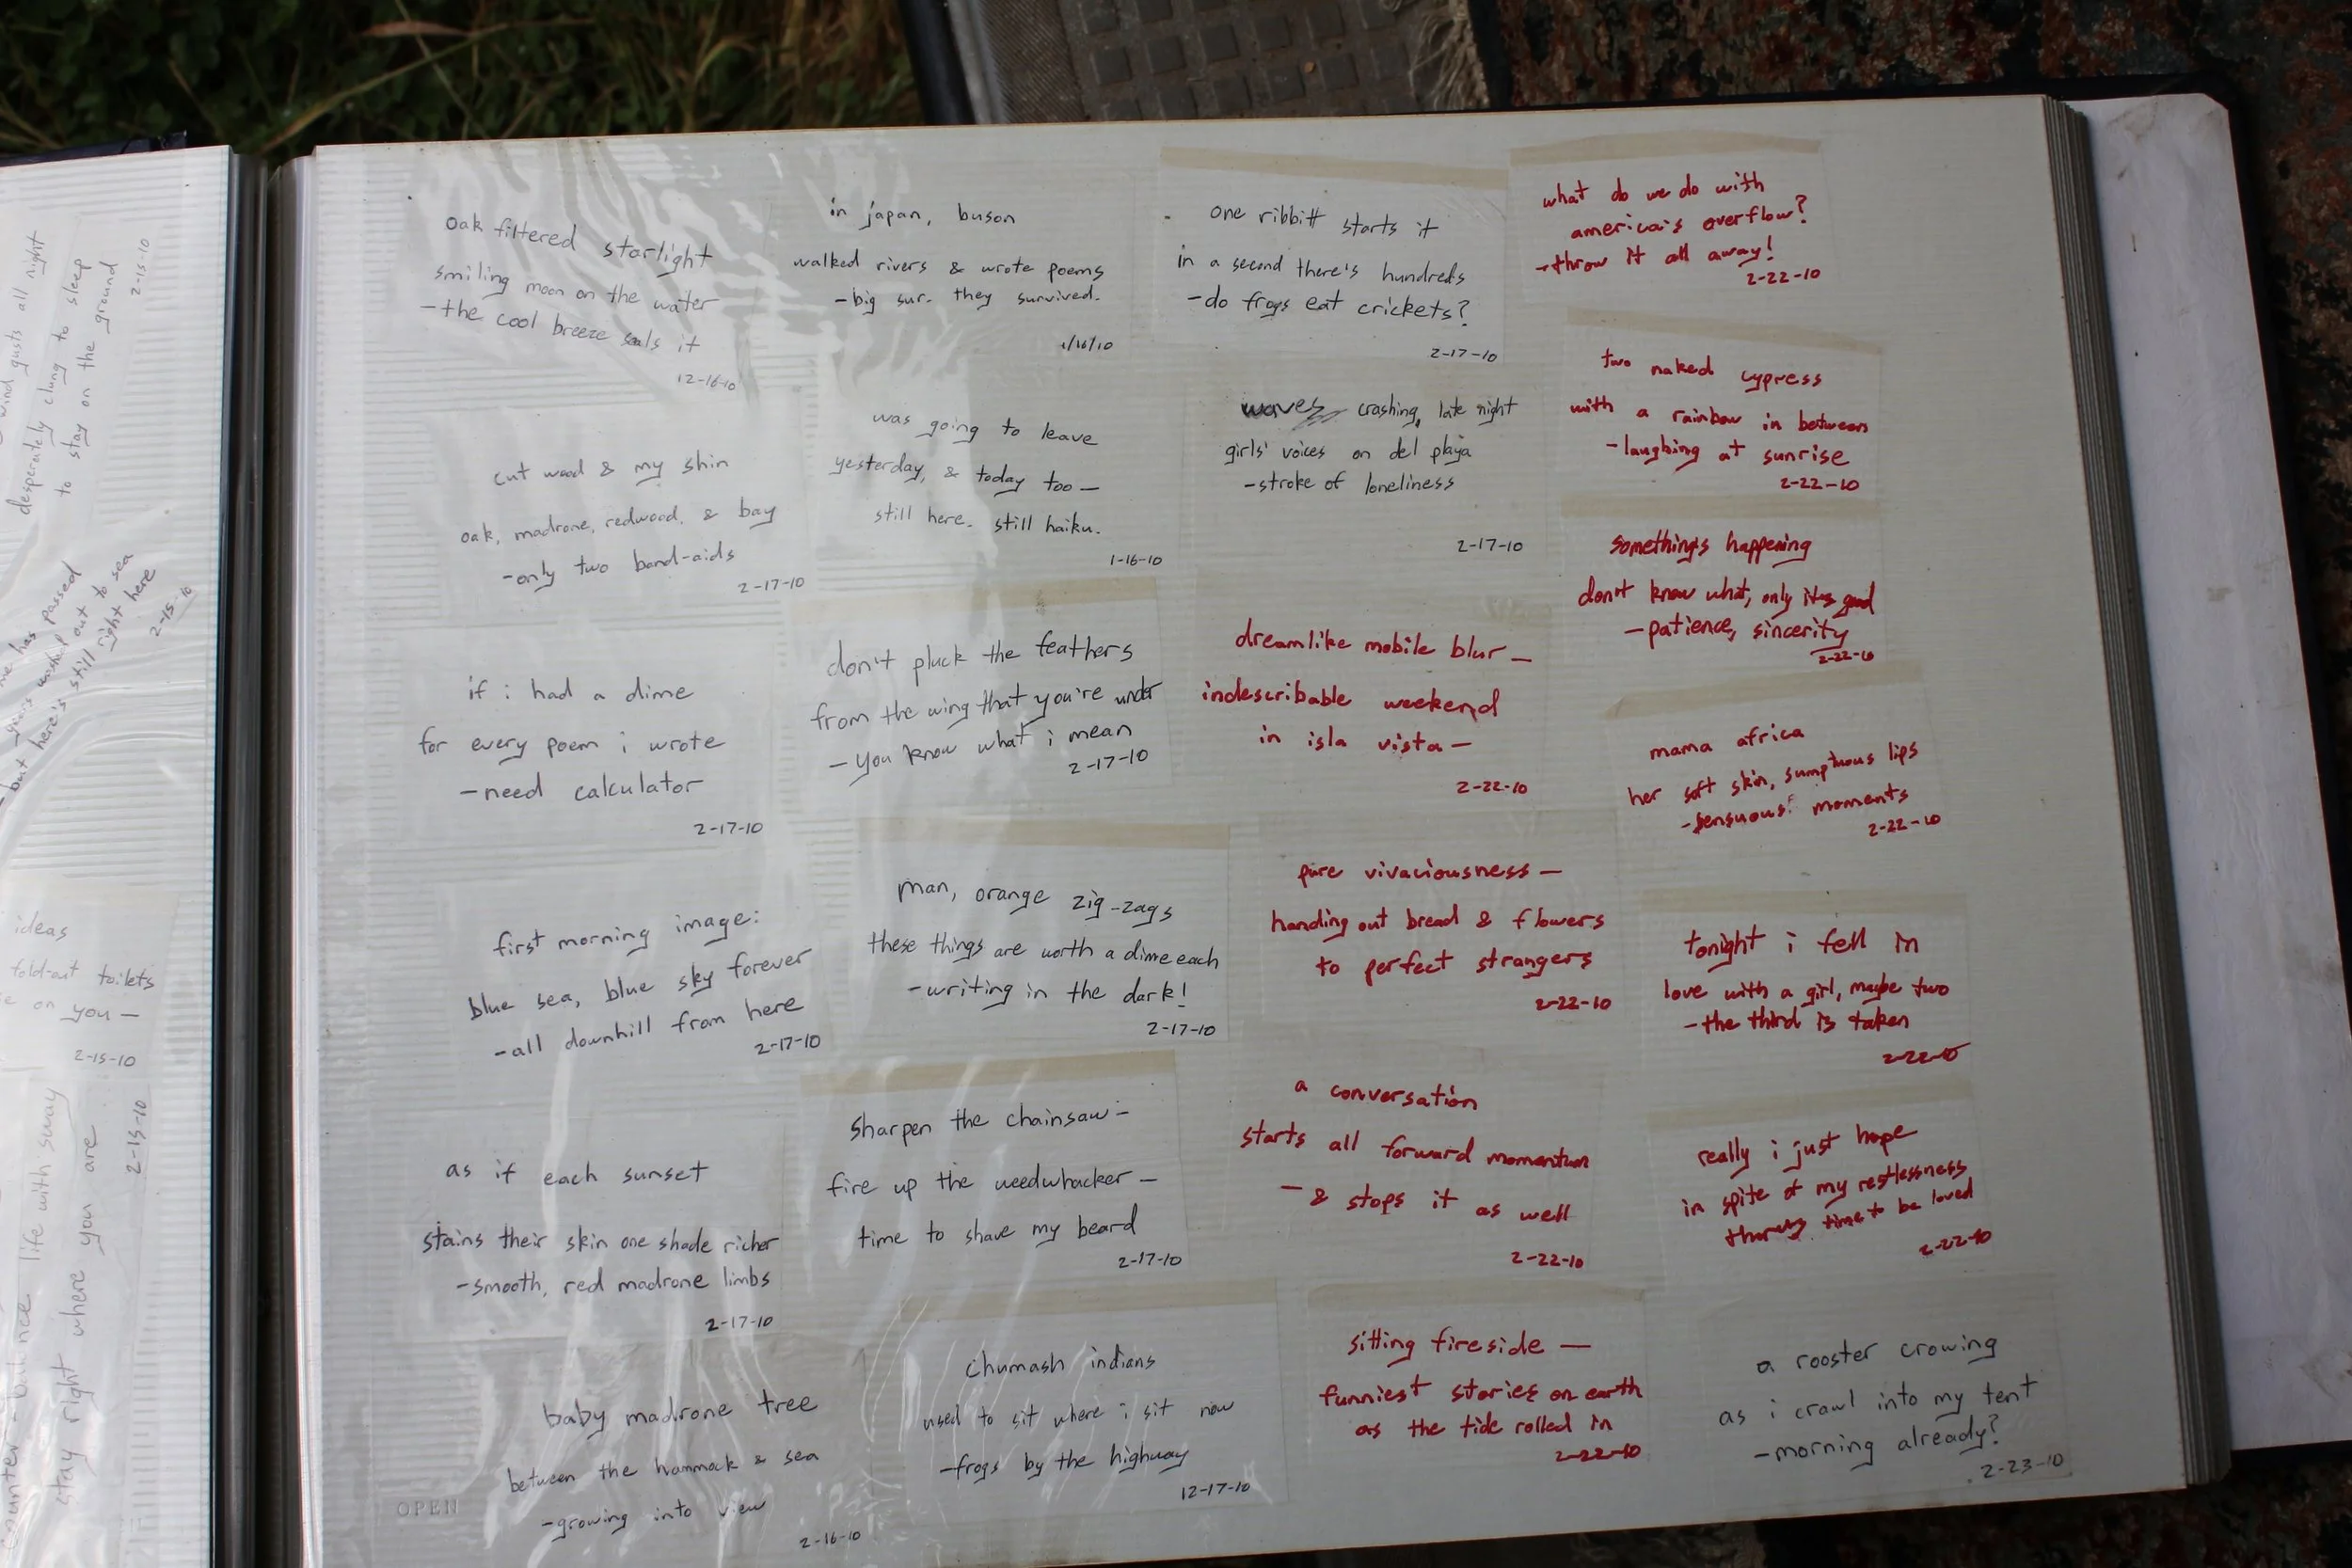 wind gusts all night
desperately clung to sleep
to stay on the ground
2-15-10
me has passed
years washed out to sea
- but here's still right here
2-15-10
ideas
fold-out toilets
e on you —
2-15-10
counter-balance life with sway
stay right where you are
2-15-10
oak filtered starlight
smiling moon on the water
- the cool breeze seals it
12-16-10
cut wood & my shin
oak, madrone, redwood, & bay
- only two band-aids
2-17-10
if i had a dime
for every poem i wrote
- need calculator
2-17-10
first morning image:
blue sea, blue sky forever
- all downhill from here
2-17-10
as if each sunset
stains their skin one shade richer
- smooth, red madrone limbs
2-17-10
baby madrone tree
between the hammock & sea
- growing into view
2-16-10
OPEN
in japan, buson
walked rivers & wrote poems
- big sur. they survived.
1/16/10
was going to leave
yesterday, & today too —
still here. still haiku.
1-16-10
don't pluck the feathers
from the wing that you're under
- you know what i mean
2-17-10
man, orange zig-zags
these things are worth a dime each
- writing in the dark!
2-17-10
sharpen the chainsaw —
fire up the weedwhacker —
time to shave my beard
2-17-10
chumash indians
used to sit where i sit now
- frogs by the highway
12-17-10
one ribbitt starts it
in a second there's hundreds
- do frogs eat crickets?
2-17-10
waves crashing, late night
girls' voices on del playa
- stroke of loneliness
2-17-10
dreamlike mobile blur —
indescribable weekend
in isla vista —
2-22-10
pure vivaciousness —
handing out bread & flowers
to perfect strangers
2-22-10
a conversation
starts all forward momentum
- & stops it as well
2-22-10
sitting fireside —
funniest stories on earth
as the tide rolled in
2-22-10
what do we do with
america's overflow?
- throw it all away!
2-22-10
two naked cypress
with a rainbow in between
- laughing at sunrise
2-22-10
something's happening
don't know what, only it's good
- patience, sincerity
2-22-10
mama africa
her soft skin, sumptuous lips
- sensuous! moments
2-22-10
tonight i fell in
love with a girl, maybe two
- the third is taken
2-22-10
really i just hope
in spite of my restlessness
there's time to be loved
2-22-10
a rooster crowing
as i crawl into my tent
- morning already?
2-23-10